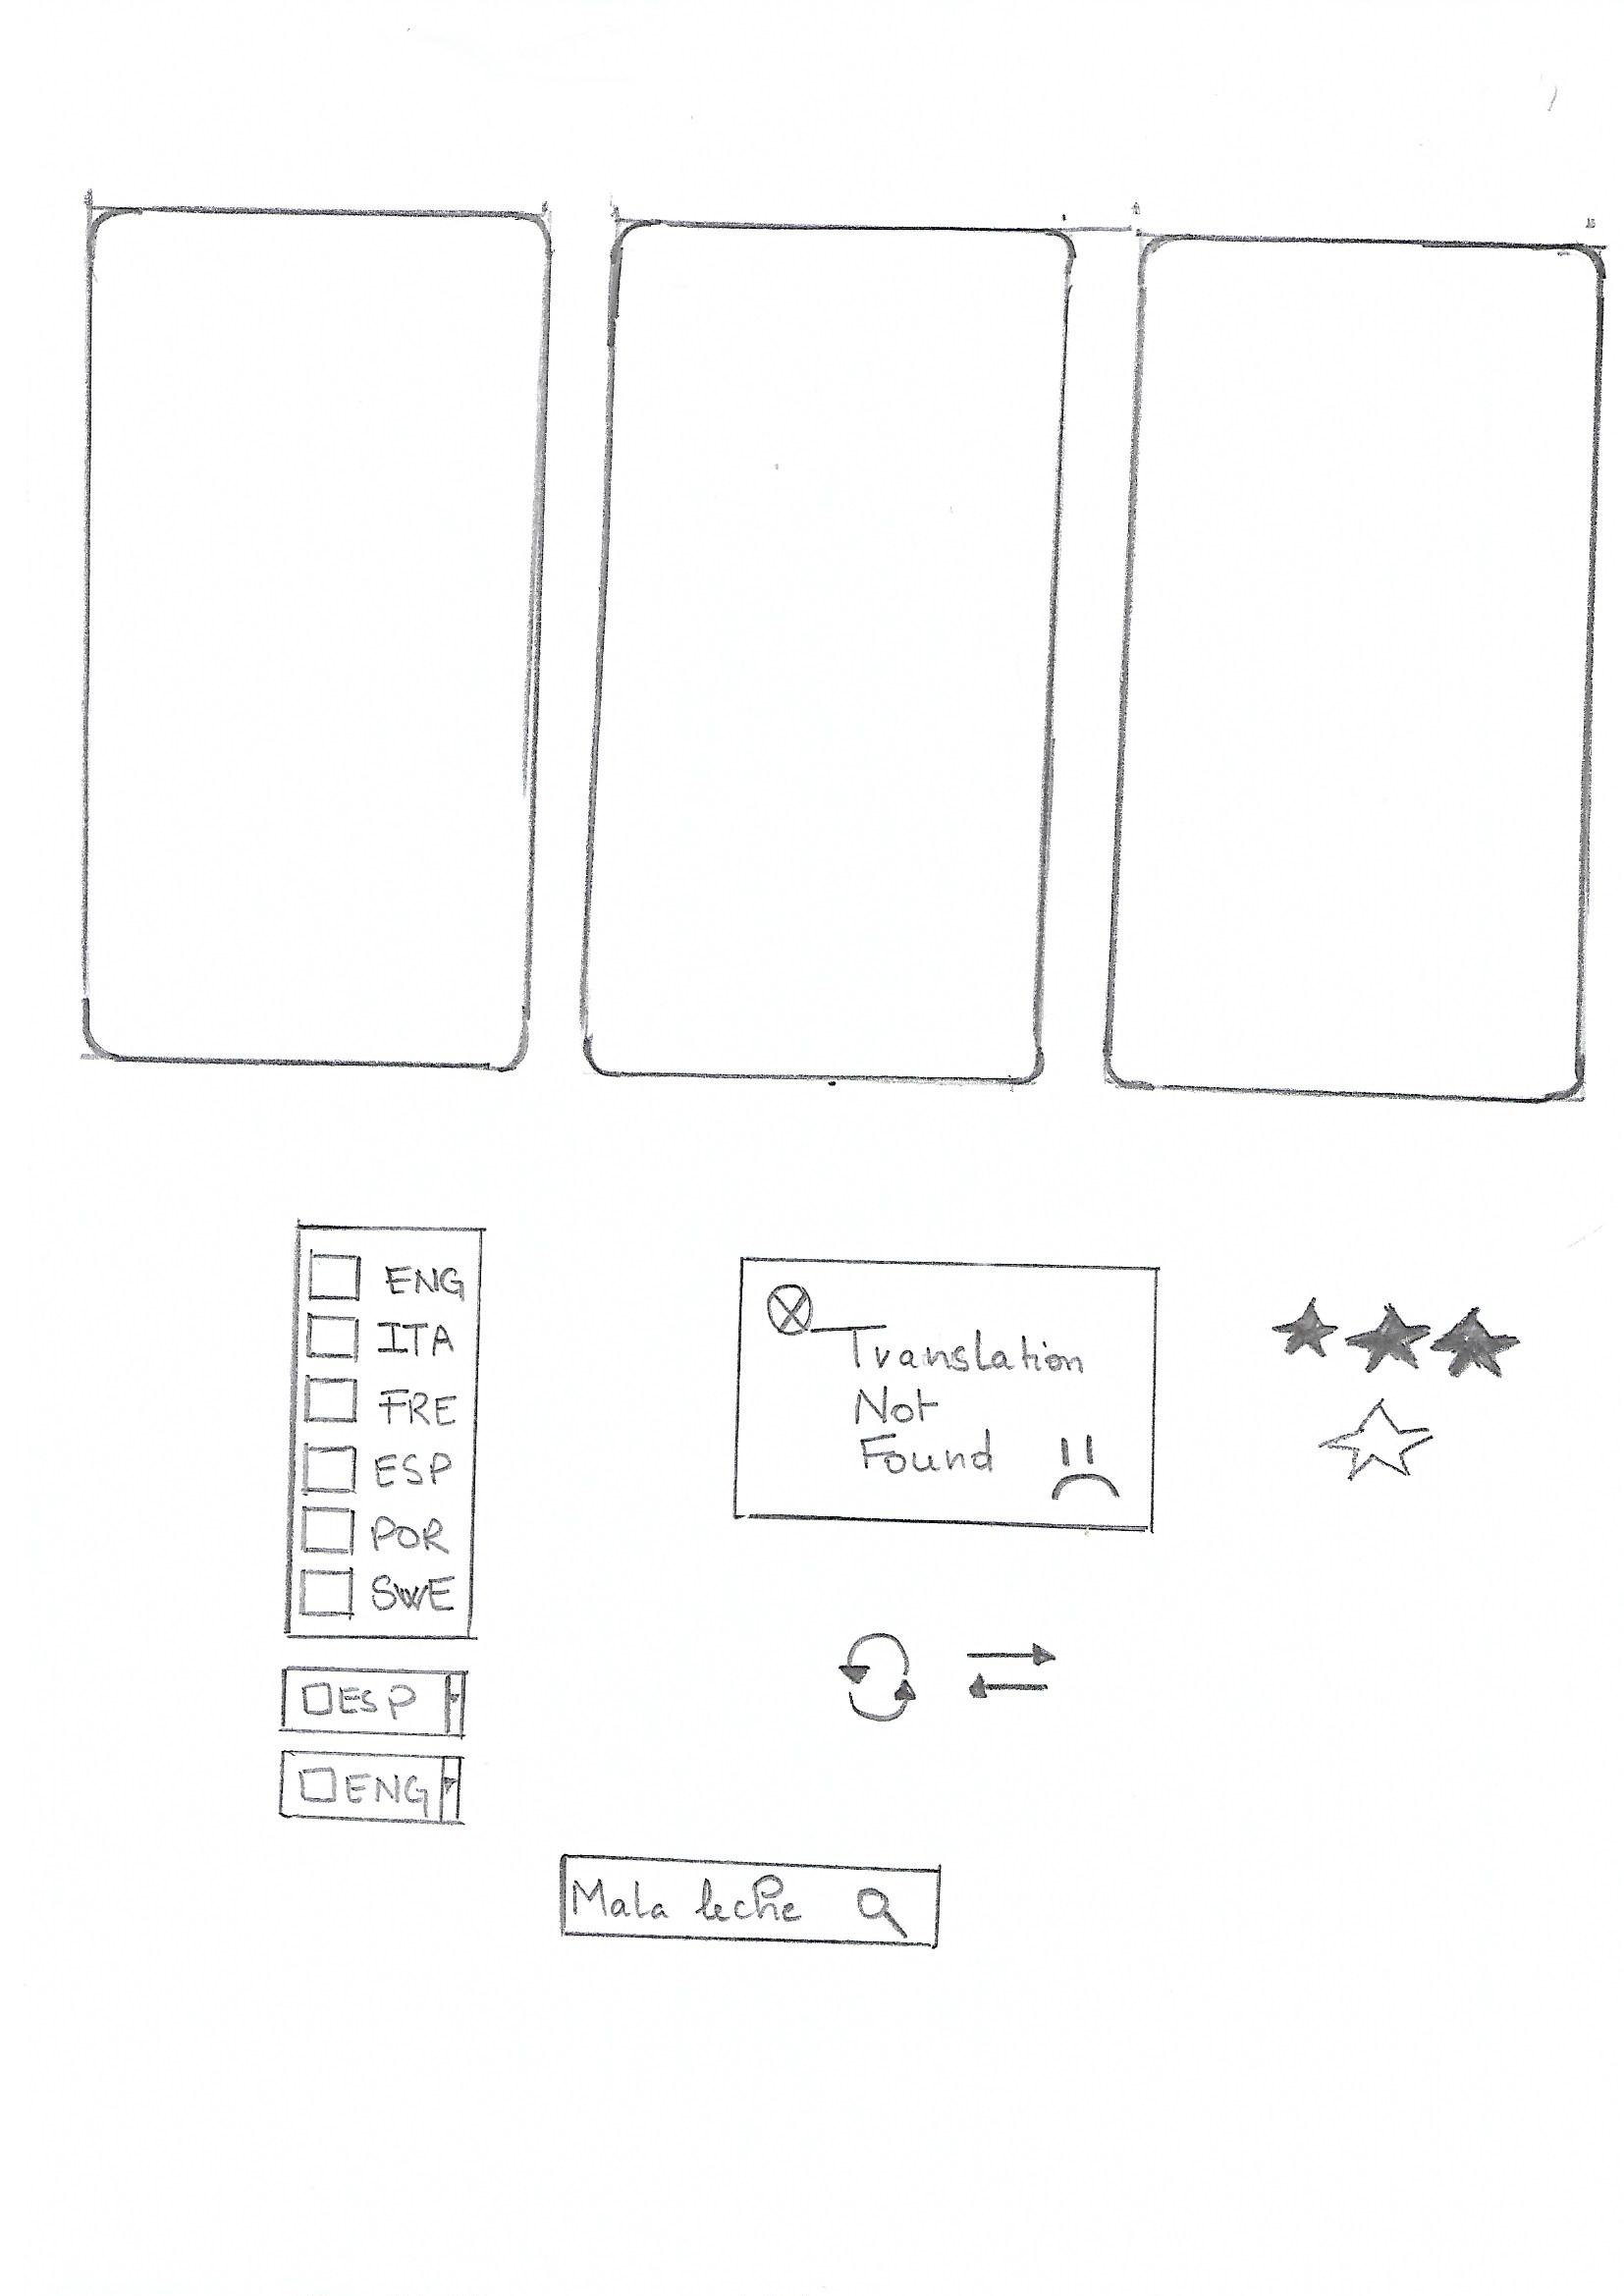 ENG
ITA
FRE
ESP
POR
SWE
ESP
ENG
Translation
Not
Found
Mala leche